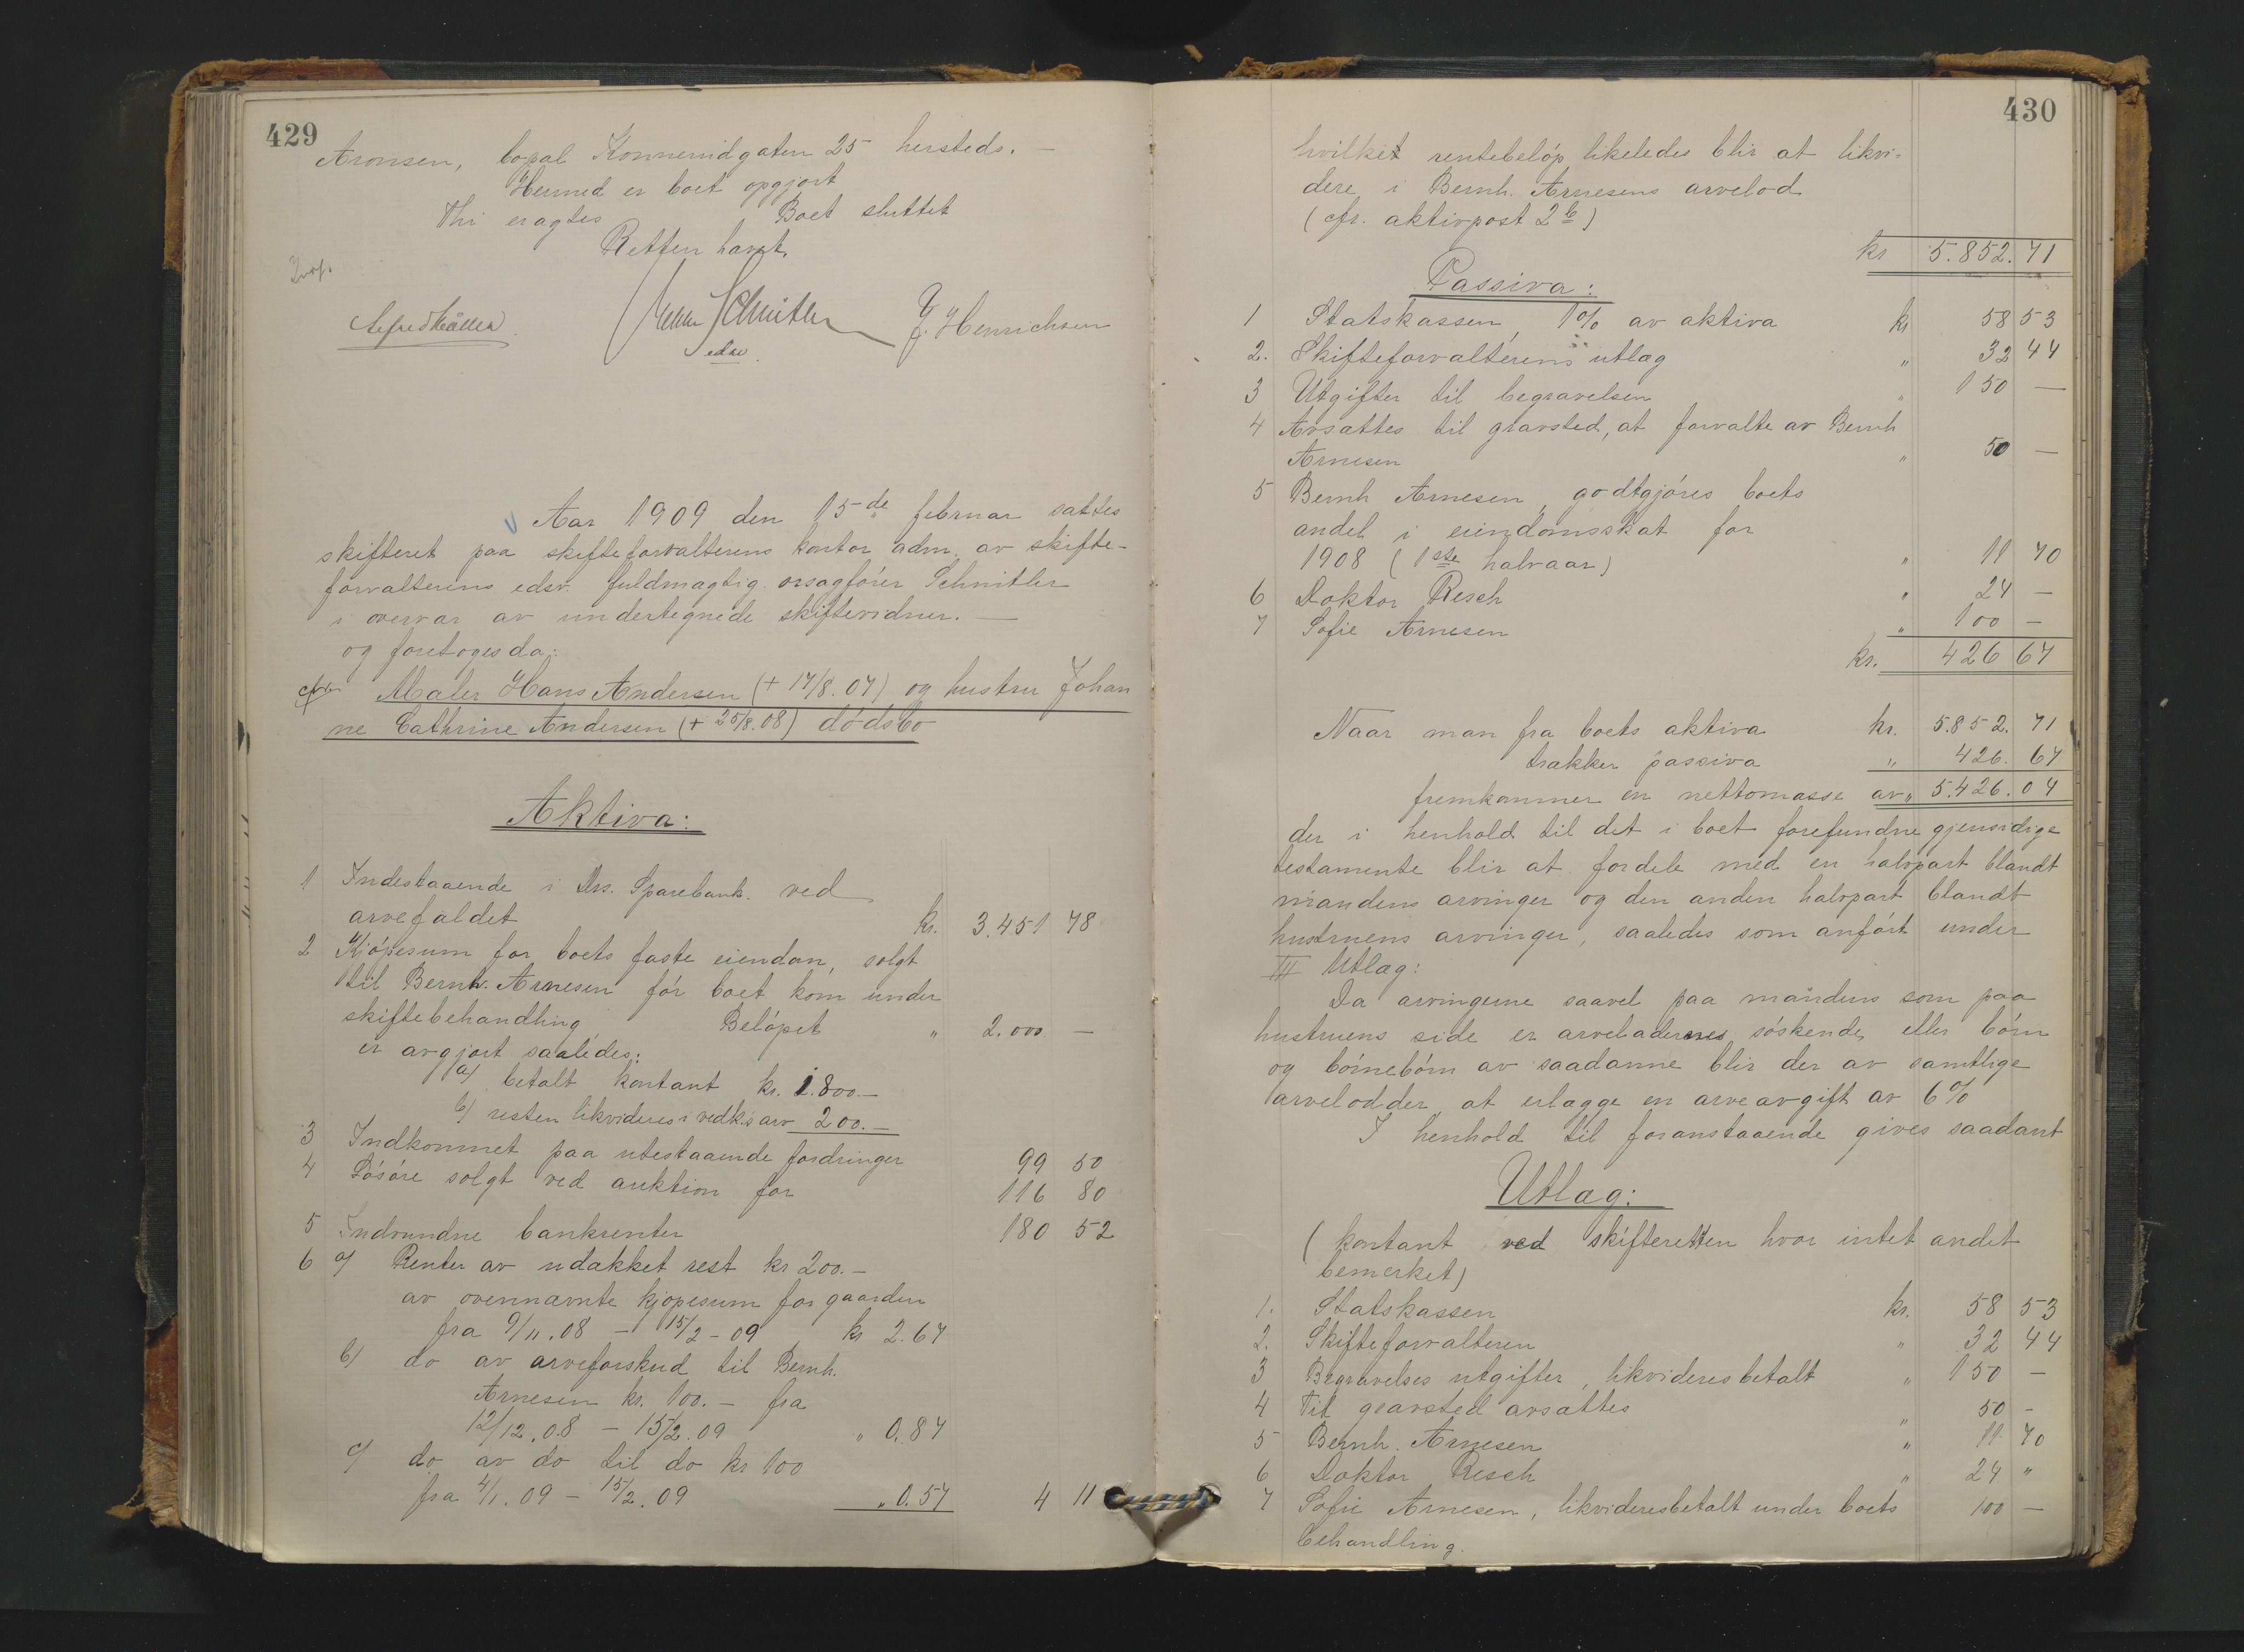 429
Aronsen, bopæl Konnerudgaten 25 hersteds. —
Hermed er boet opgjort
Thi eragtes Boet sluttet
Retten hævet.
Schnitler J. Henrichsen
edsv.
Aar 1909 den 15de februar sattes
skifteret paa skifteforvalterens kontor adm. av skifte-
forvalterens edsv. fuldmægtig orsagfører Schnitler
i overvær av undertegnede skiftevidner. —
og foretoges da:
Maler Hans Andersen (+ 17/8.07) og hustru Johan
ne Cathrine Andersen (+ 25/8.08) dødsbo
Aktiva:
1 Indestaaende i Drs. Sparebank ved
arvefaldet kr. 3.451 78
2 Kjøpesum for boets faste eiendom, solgt
til Bernh. Arnesen før boet kom under
skiftebehandling Beløpet " 2.000 —
er avgjort saaledes:
a) betalt kontant kr. 1.800.—
b) resten likvideres i vedk.s arv 200.—
3 Indkommet paa utestaaende fordringer 99 50
4 Løsøre solgt ved auktion for 116 80
5 Indvundne bankrenter 180 52
6 a) Renter av udækket rest kr 200.—
av ovennævnte kjøpesum for gaarden
fra 9/11.08 — 15/2-09 kr 2.67
b) do av arveforskud til Bernh.
Arnesen kr. 100.— fra
12/12.08 — 15/2.09 " 0.87
c) do av do til do kr 100
fra 4/1.09 — 15/2.09 " 0.57 4 11
430
hvilket rentebeløp likeledes blir at likvi-
dere i Bernh. Arnesens arvelod
(cfr. aktivpost 2 b)
kr 5.852.71
Passiva:
1 Statskassen, 1% av aktiva kr 58 53
2. Skifteforvalterens utlæg " 32 44
3 Utgifter til begravelsen " 150 —
4 Avsættes til gravsted, at forvalte av Bernh
Arnesen " 50 —
5 Bernh Arnesen, godtgjøres boets
andel i eiendomsskat for
1908 (1ste halvaar) " 11 70
6 Doktor Resch " 24 —
7 Sofie Arnesen " 100 —
kr. 426 67
Naar man fra boets aktiva kr. 5.852. 71
trækker passiva " 426. 67
fremkommer en nettomasse av " 5.426.04
der i henhold til det i boet forefundne gjensidige
testamente blir at fordele med en halvpart blandt
mandens arvinger og den anden halvpart blandt
hustruens arvinger, saaledes som anført under
III Utlæg:
Da arvingerne saavel paa mandens som paa
hustruens side er arveladernes søskende, eller børn
og børnebørn av saadanne blir der av samtlige
arvelodder at erlægge en arveavgift av 6%
I henhold til foranstaaende gives saadant
Utlæg:
(kontant ved skifteretten hvor intet andet
bemerket)
1. Statskassen kr. 58 53
2. Skifteforvalteren " 32 44
3 Begravelses utgifter, likvideres betalt " 150 —
4 Til gravsted avsættes " 50 -
5 Bernh. Arnesen " 11. 70
6 Doktor Resch " 24 "
7 Sofie Arnesen, likvideres betalt under boets 100 —
behandling.